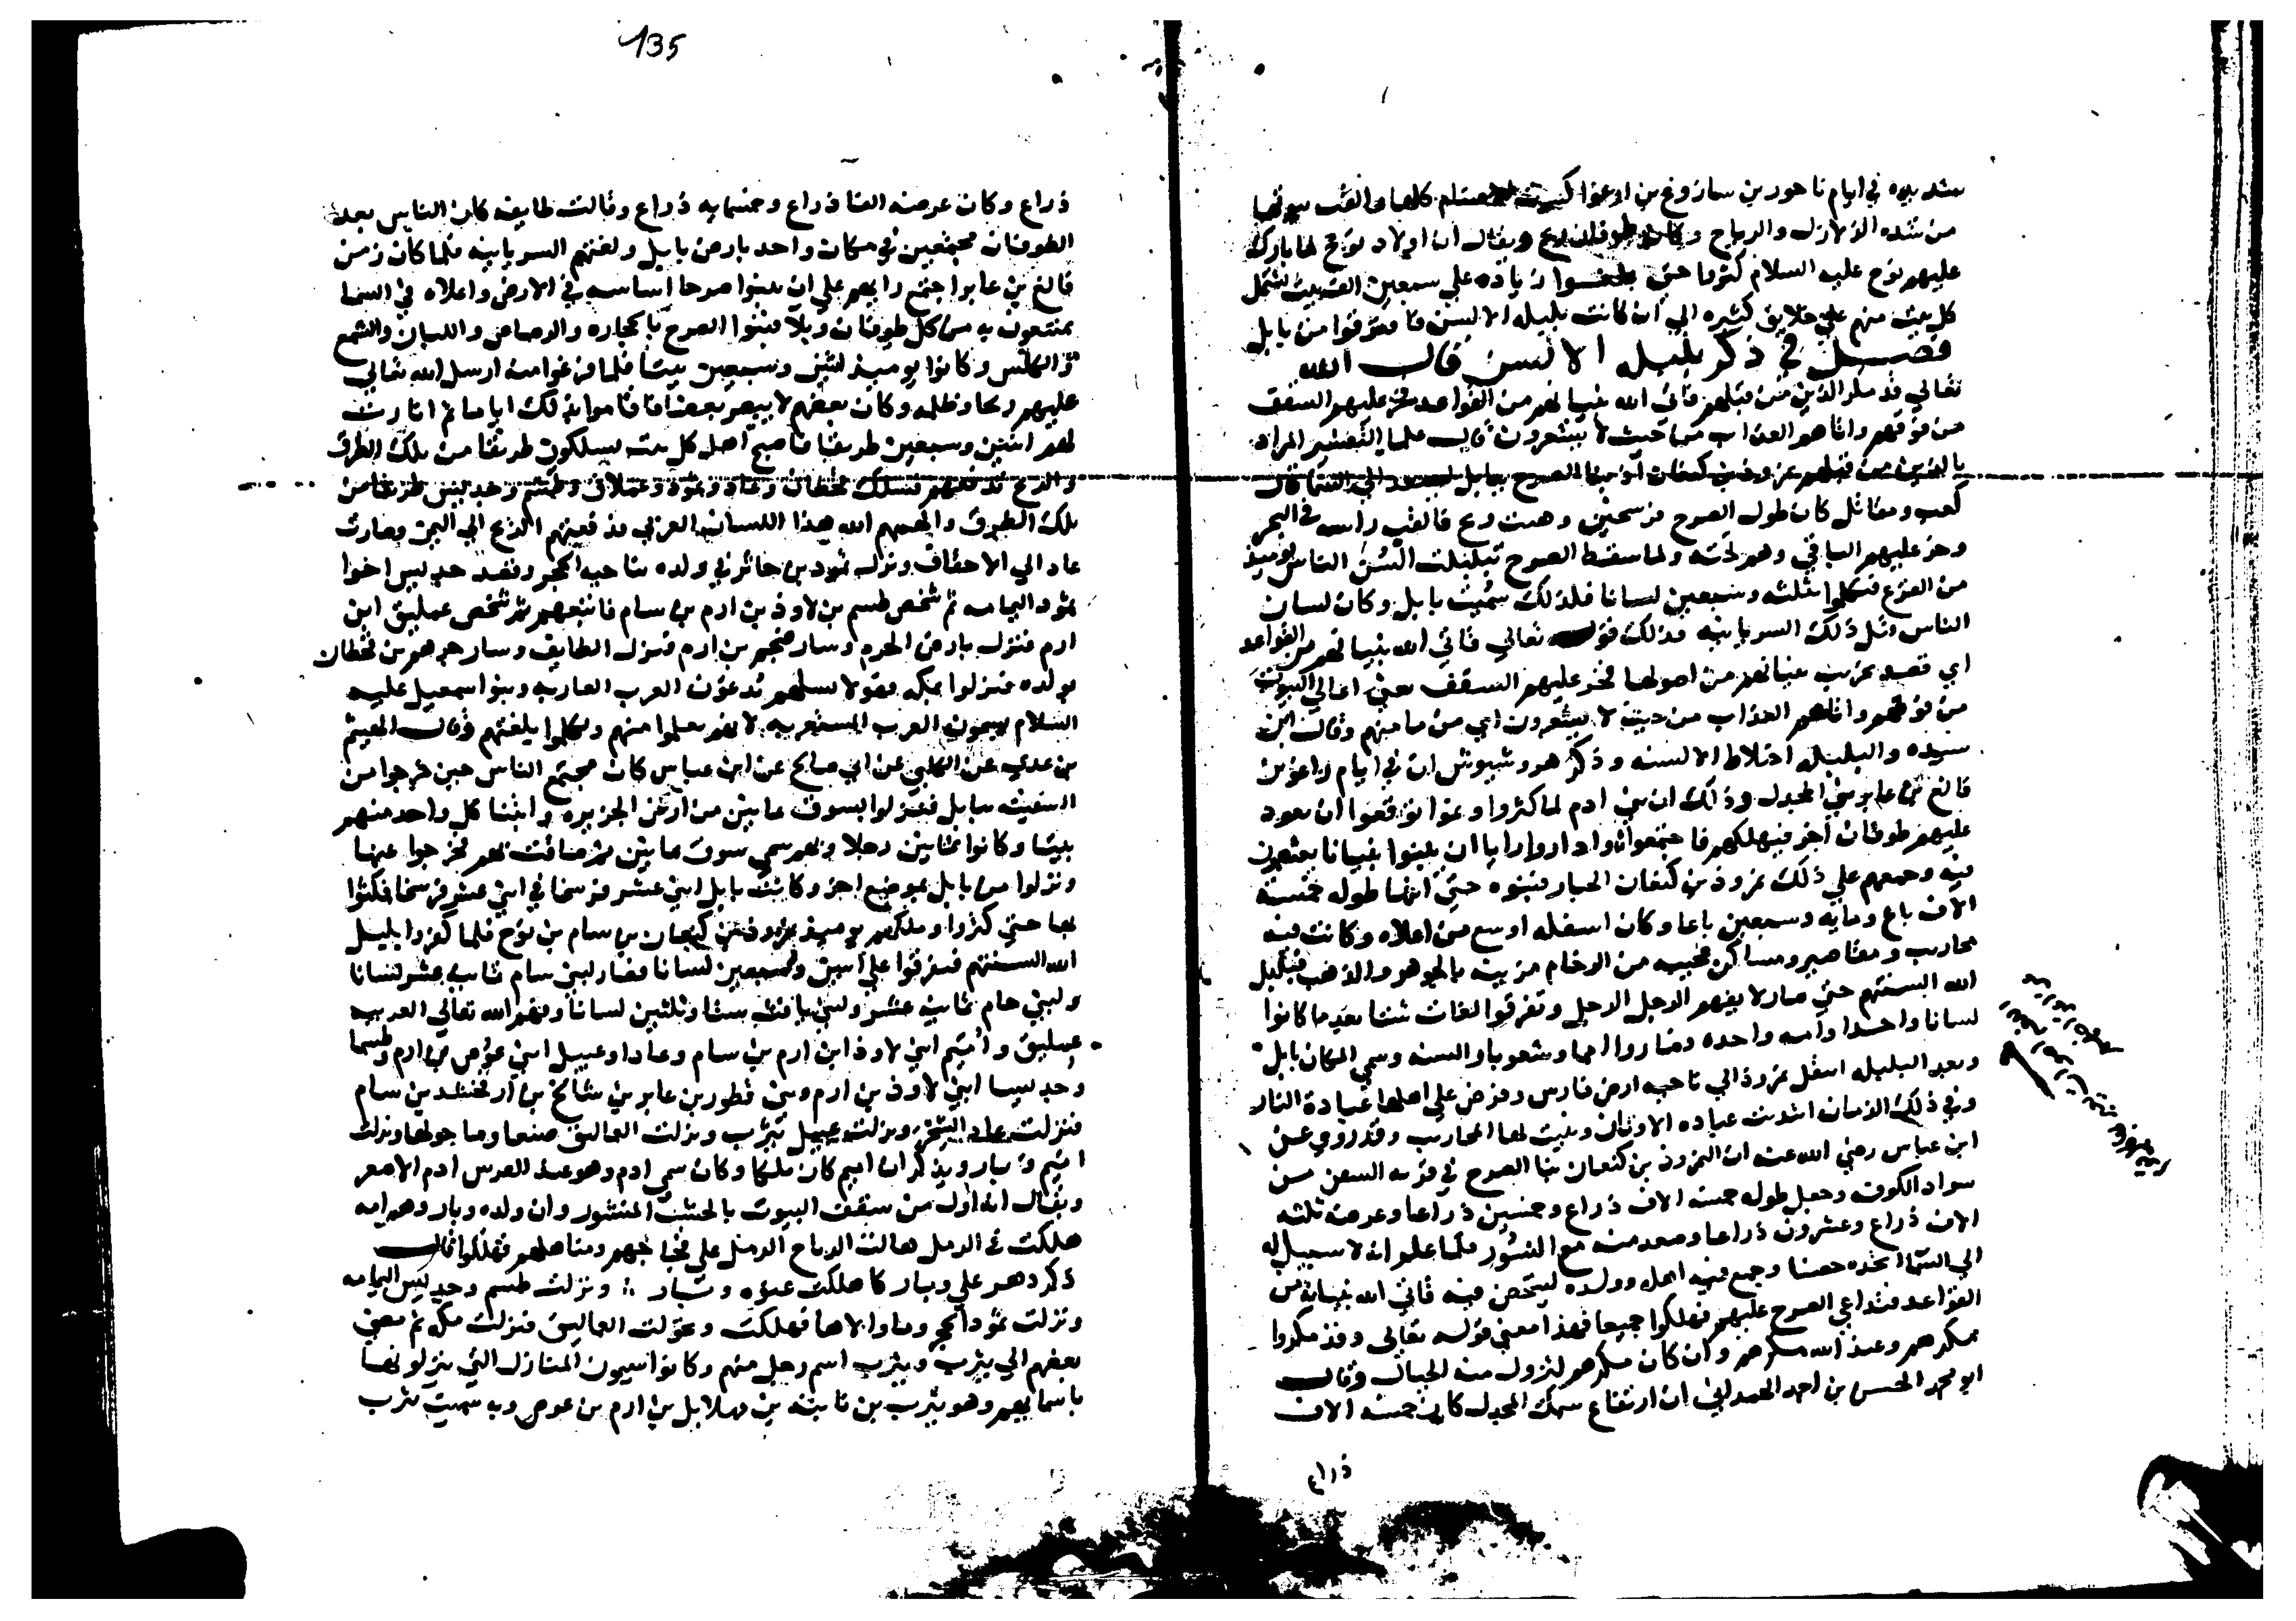 شديده في ايام ناحور بن ساروغ بن ارغوا كسرت الاصنام كلها والقت بيوتها
من شده الزلازل والرياح وكان طوفان ريح ويقال ان اولاد نوح لما بارك
عليهم نوح عليه السلام كثروا حتي بلغوا زياده علي سبعين الف بيت يشتمل
كل بيت منهم علي خلايق كثيره الي ان كانت بلبله الالسن فافترقوا من بابل
فصل في ذكر بلبله الالسن قال الله
تعالي قد مكر الذين من قبلهم فاتي الله بنيانهم من القواعد فخر عليهم السقف
من فوقهم واتاهم العذاب من حيث لا يشعرون قال علما التفسير المراد
بالذين من قبلهم نمروذ بن كنعان الذي بنا الصرح ببابل ليصعد الي السما قال
كعب ومقاتل كان طول الصرح فرسخين وهبت ريح فالقت راسه في البحر
وخر عليهم الباقي وهم تحته ولما سقط الصرح تبلبلت السن الناس يوميذ
من الفزع فتكلموا بثلثه وسبعين لسانا فلذلك سميت بابل وكان لسان
الناس قبل ذلك السريانيه فذلك قوله تعالي فاتي الله بنيانهم من القواعد
اي قصد تخريب بنيانهم من اصولها فخر عليهم السقف يعني اعالي البيوت
من فوقهم واتاهم العذاب من حيث لا يشعرون اي من مامنهم وقال ابن
سيده والبلبله اختلاط الالسنه وذكر هروشيوش ان في ايام راغو بن
فالغ بن عابر بني المجدل وذلك ان بني ادم لما كثروا ونموا توقعوا ان يعود
عليهم طوفان اخر فيهلكهم فاجتمعوا واداروا رايا ان يبنوا بنيانا يعتصمون
فيه وجمعهم علي ذلك نمروذ بن كنعان الجبار فبنوه حتي انتها طوله خمسه
الاف باع ومايه وسبعين باعا وكان اسفله اوسع من اعلاه وكانت فيه
محاريب ومقاصير ومساكن عجيبه من الرخام مزينه بالجوهر والذهب فبلبل
الله السنتهم حتي صار لا يفهم الرجل الرجل وتفرقوا لغات شتا بعد ما كانوا
لسانا واحدا وامه واحده وصاروا امما وشعوبا والسنه وسمي المكان بابل
وبعد البلبله انتقل نمروذ الي ناحيه ارض فارس وفرض علي اهلها عبادة النار
وفي ذلك الزمان ابتديت عباده الاوثان وبنيت لها المحاريب وقد روي عن
ابن عباس رضي الله عنه ان النمروذ بن كنعان بنا الصرح في قريه السعن من
سواد الكوفه وجعل طوله خمسه الاف ذراع وخمسين ذراعا وعرضه ثلثه
الاف ذراع وعشرون ذراعا وصعد منه مع النسور فلما علم انه لا سبيل له
الي السما اتخذه حصنا وجمع فيه اهله وولده ليتحصن فيه فاتي الله بنيانه من
القواعد فتداعي الصرح عليهم فهلكوا جميعا فهذا معني قوله تعالي وقد مكروا
مكرهم وعند الله مكرهم وان كان مكرهم لتزول منه الجبال وقال
ابو محمد الحسن بن احمد الهمداني ان ارتفاع سمك المجدل كان خمسه الاف
ذراع
135
ذراع وكان عرضه الفا ذراع وخمسمايه ذراع وقالت طايفه كان الناس بعد
الطوفان مجتمعين في مكان واحد بارض بابل ولغتهم السريانيه فلما كان زمن
فالغ بن عابر اجتمع رايهم علي ان يبنوا صرحا اساسه في الارض واعلاه في السما
يمتنعون به من كل طوفان وبلا فبنوا الصرح بالحجاره والرصاص واللبان والشمع
والكلس وكانوا يوميذ اثنين وسبعين بيتا فلما فرغوا منه ارسل الله تعالي
عليهم ريحا وظلمه وكان بعضهم لا يبصر بعضا فاقاموا بذلك اياما ثم انارت
لهم اثنين وسبعين طريقا فاصبح اهل كل بيت يسلكون طريقا من تلك الطرق
والريح تدفعهم فسلك قحطان وعاد وثمود وعملاق وطسم وجديس طريقا من
تلك الطرق والهمهم الله هذا اللسان العربي فدفعتهم الريح الي اليمن وصارت
عاد الي الاحقاف ونزل ثمود بن جاثر في ولده ناحيه الحجر وقصد جديس اخوا
ثمود اليمامه ثم شخص طسم بن لاوذ بن ارم بن سام فاتبعهم ثم شخص عمليق ابن
ارم فنزل بارض الحرم وسار ضجم بن ارم فنزل الطايف وسار جرهم بن قحطان
بولده فنزلوا بمكه فهولا ونسلهم تدعون العرب العاربه وبنوا سمعيل عليه
السلام يسمون العرب المستعربه لانهم تعلموا منهم وتكلموا بلغتهم وقال الهيثم
بن عدي عن الكلبي عن ابي صالح عن ابن عباس كان مجتمع الناس حين خرجوا من
السفينه ببابل فنزلوا بسوق ثمانين من ارض الجزيره وابتنا كل واحد منهم
بيتا وكانوا ثمانين رجلا وبهم سمي سوق ثمانين ثم ضاقت بهم فخرجوا عنها
ونزلوا من بابل بموضع اخر وكانت بابل اثني عشر فرسخا في اثني عشر فرسخا فمكثوا
بها حتي كثروا وملكهم يوميذ نمروذ بن كنعان بن سام بن نوح فلما كفروا بلبل
الله السنتهم فتفرقوا علي اثنين وسبعين لسانا فصار لبني سام ثمانيه عشر لسانا
ولبني حام ثمانيه عشر ولبني يافث ستا وثلثين لسانا وفهم الله تعالي العربيه
عمليق واميم ابني لاوذ ابن ارم بن سام وعادا وعبيل ابني عوص بن ارم وطسما
وجديسا ابني لاوذ بن ارم وبني قطور بن عابر بن شالخ بن ارفخشد بن سام
فنزلت عاد الشحر ونزلت عبيل يثرب ونزلت العماليق صنعا وما حولها ونزلت
اميم وبار ويذكر ان اميم كان ملكا وكان سمي ادم وهو عند الفرس ادم الاصغر
ويقال انه اول من سقف البيوت بالخشب المنشور وان ولده وبار وهم امه
هلكت في الرمل هالت الرياح الرمل علي فجاجهم ومناهلهم فهلكوا قال
ذكر دهر علي وبار كما هلكت عنوه وبار ونزلت طسم وجديس اليمامه
ونزلت ثمود الحجر وما والاها فهلكت وتحولت العماليق فنزلت مكه ثم مضي
بعضهم الي يثرب ويثرب اسم رجل منهم وكانوا يسمون المنازل التي ينزلونها
باسمايهم وهو يثرب بن نابته بن مهلابل بن ارم بن عوص وبه سميت يثرب